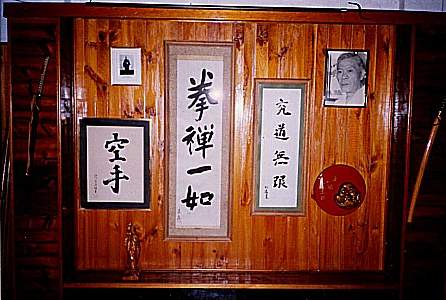 空手
拳禅一如
究道無限